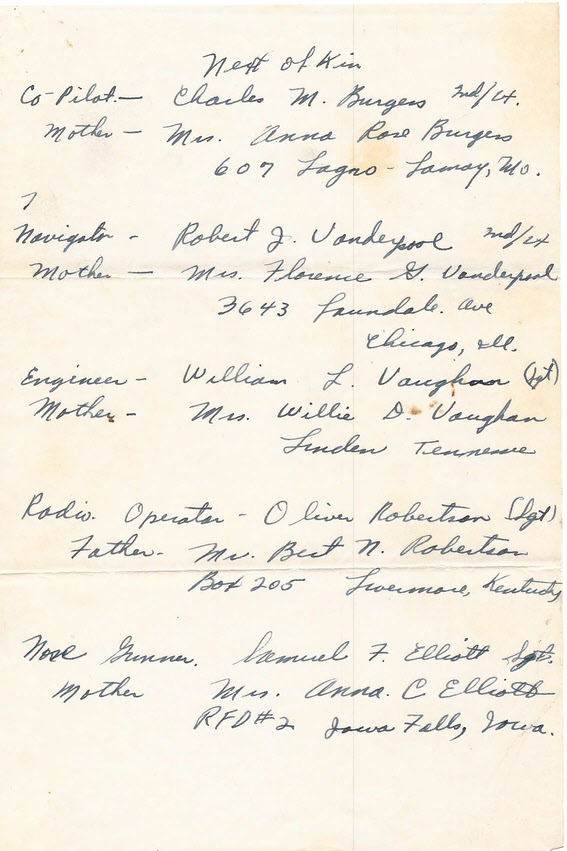 Next of Kin
Co-Pilot — Charles M. Burgess 2nd/Lt.
Mother — Mrs. Anna Rose Burgess
607 - Lemay, Mo.
7
Navigator - Robert J. Vanderpool 2nd/Lt
Mother — Mrs. Florence G. Vanderpool
3643 Ave
Chicago, Ill.
Engineer - William L. Vaughan (Sgt)
Mother - Mrs. Willie D. Vaughan
Linden Tennessee
Radio. Operator - Oliver Robertson (Sgt)
Father - Mr. Bert N. Robertson
Box 205 Livermore, Kentucky
Nose Gunner. Samuel F. Elliott Sgt.
Mother Mrs. Anna. C Elliott
RFD#2 Iowa Falls, Iowa.